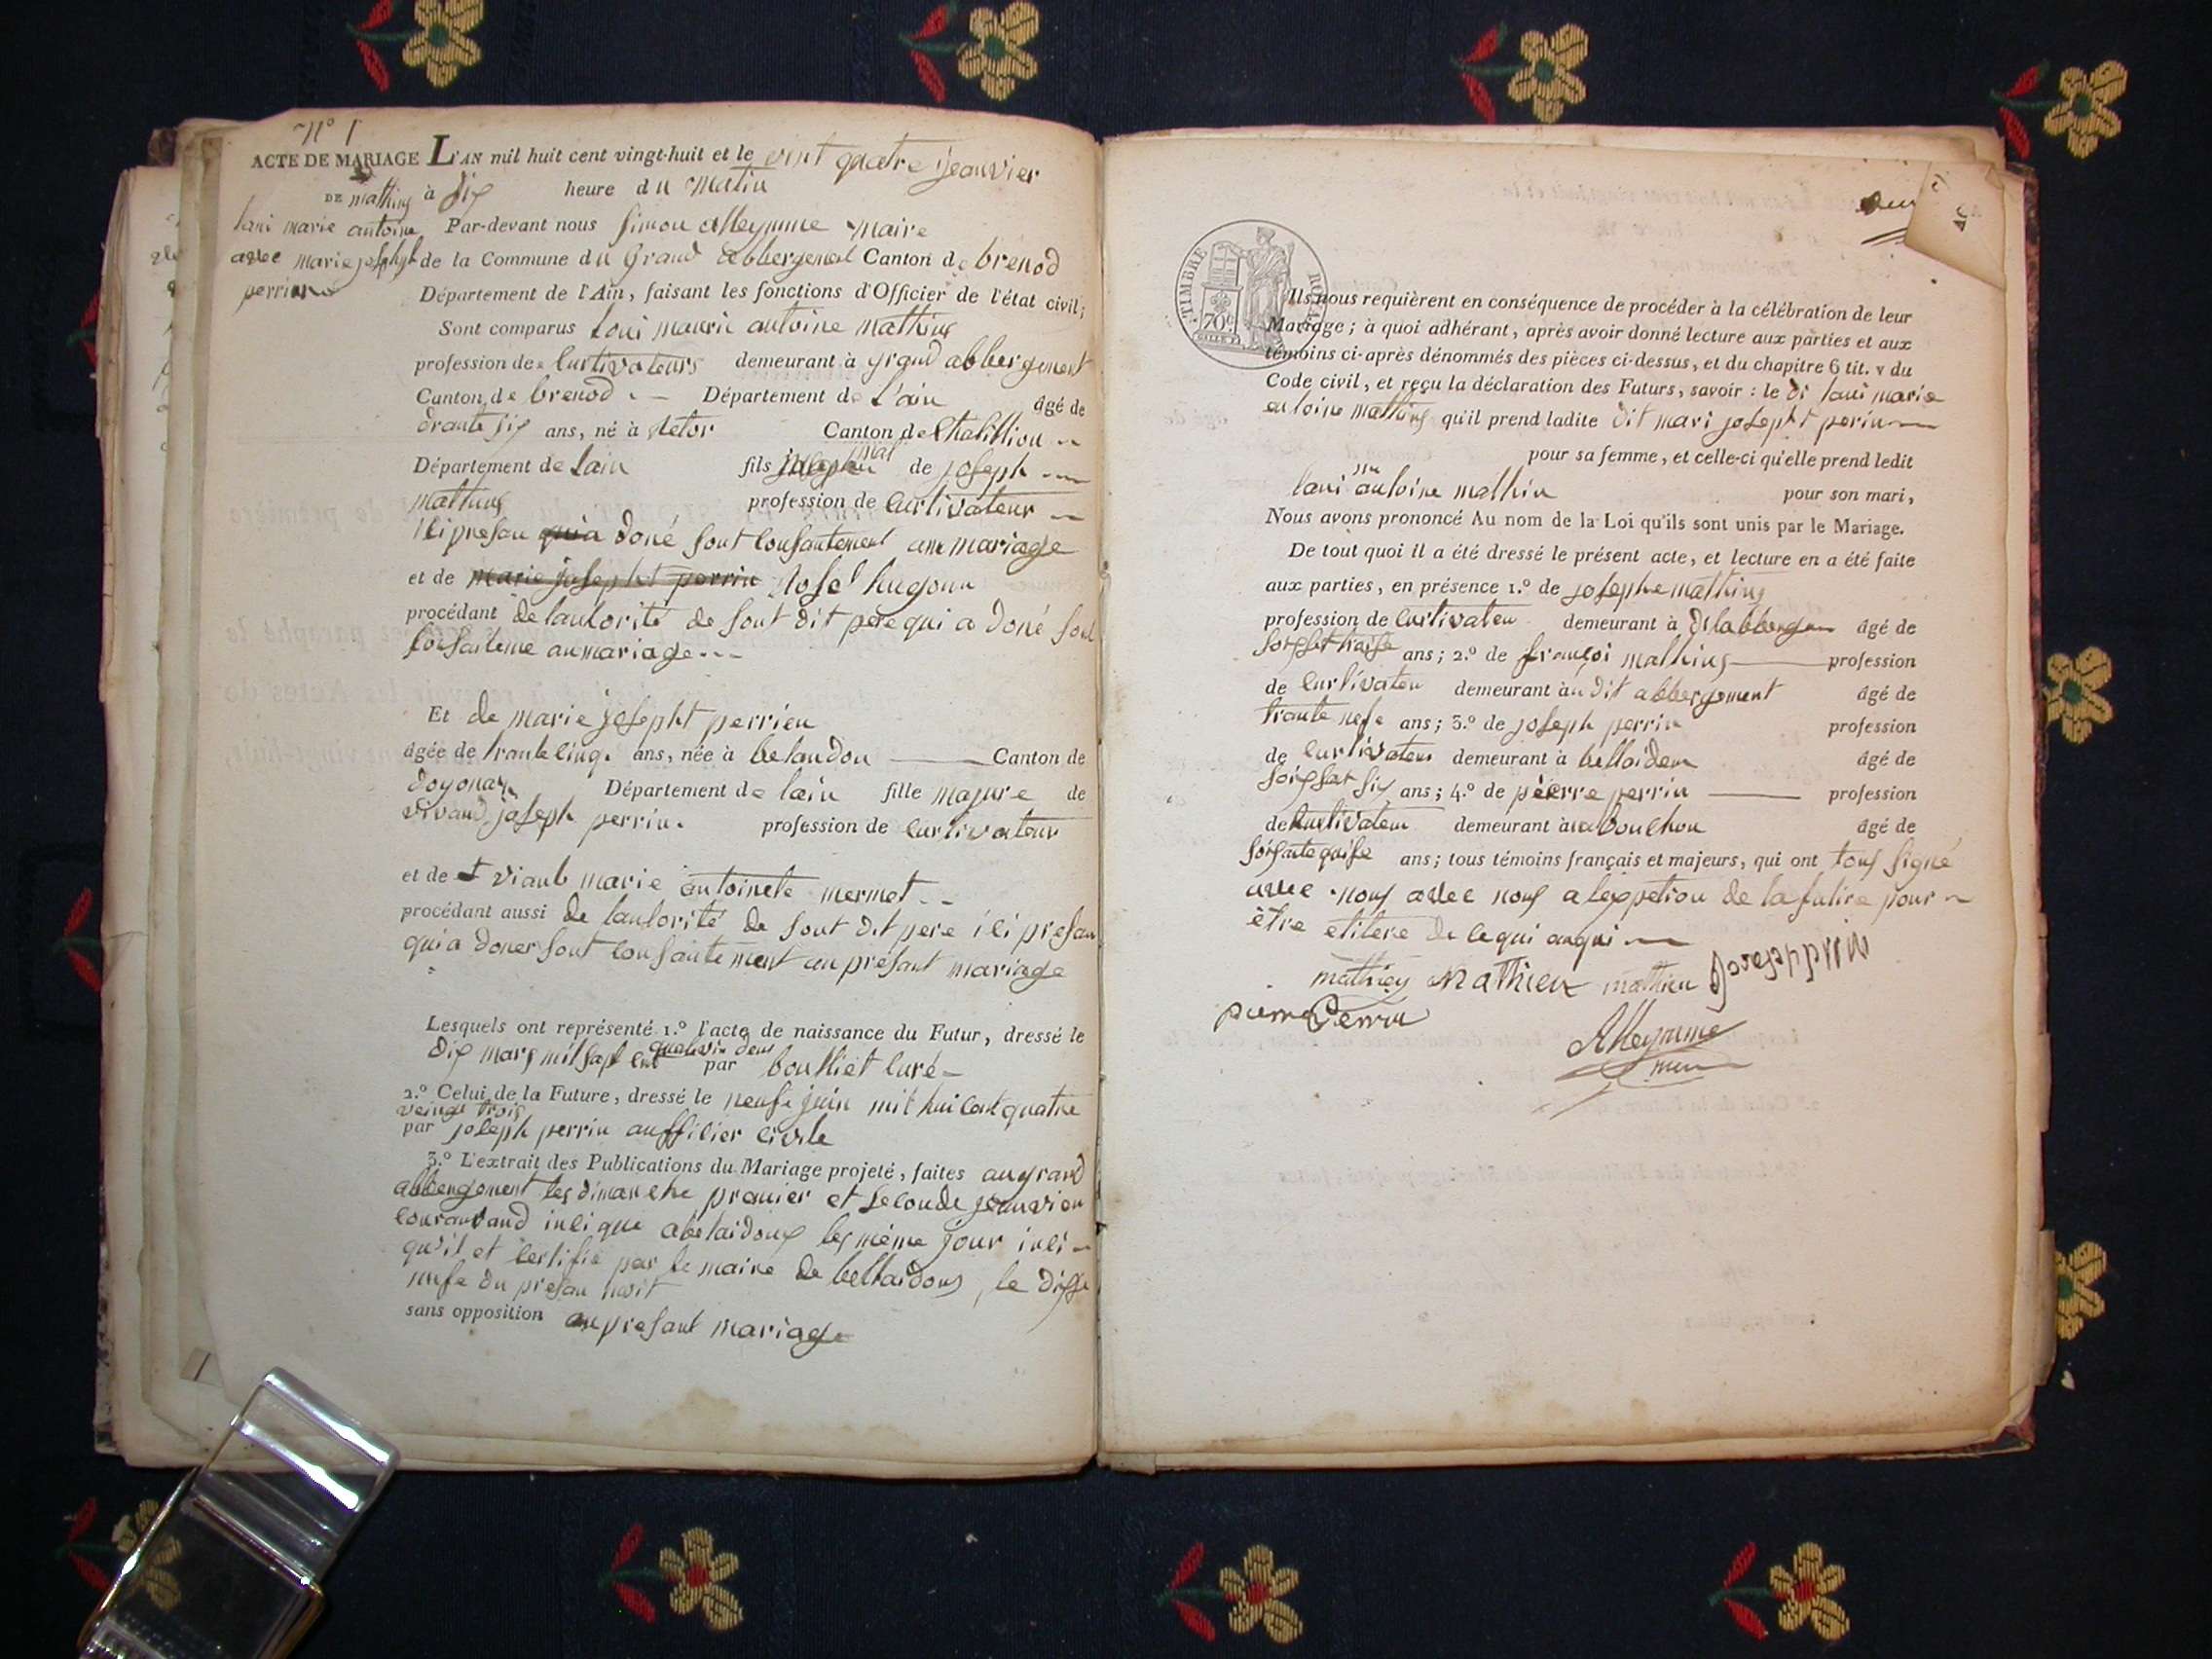 N° 1
ACTE DE MARIAGE L'AN mil huit cent vingt-huit et le vint quatre jeanvier
DE mathieu à dix heure du matin
loui marie antoine Par-devant nous Simon alleymme maire
avec marie josepht de la Commune du Grand abbergement Canton de brenod
perrin Département de l'Ain, faisant les fonctions d'Officier de l'état civil;
Sont comparus Loui antoine mathieu
profession de curtivateurs demeurant à grand abbergement
Canton de brenod Département de L'ain âgé de
ans, né à Canton de
Département de Lain fils de joseph
mathieu profession de curtivateur
ici presan doné sont consantement au mariage
et de marie josepht perrin
procédant de lautorité de sont dit père qui a doné sont
au mariage
Et de marie josepht perrien
âgée de trante cinq ans, née à belaudou Canton de
doyonax Département de lain fille majure de
vivand joseph perrin. profession de curtivateur
et de viant marie antoinete mermet
procédant aussi de lautorité de sont dit pere ici presan
qui a doner sont consantement au présant mariage
Lesquels ont représenté 1.° l'acte de naissance du Futur, dressé le
dix mars mil sapt cent par curé
2.° Celui de la Future, dressé le neufe juin mil hui cent quatre
veingt trois
par joseph perrin auffisier civile
3.° L'extrait des Publications du Mariage projeté, faites au grand
abbergement les dimanche premier et seconde jeanvier
les même jour
qu'il et certifié par le maire de bellaidoux, le
du presan
sans opposition au presant mariage
TIMBRE ROYAL
70c
Ils nous requièrent en conséquence de procéder à la célébration de leur
Mariage; à quoi adhérant, après avoir donné lecture aux parties et aux
témoins ci-après dénommés des pièces ci-dessus, et du chapitre 6 tit. v du
Code civil, et reçu la déclaration des Futurs, savoir: le di loui marie
antoine mathieu qu'il prend ladite dit mari josepht perin
pour sa femme, et celle-ci qu'elle prend ledit
loui antoine mathieu pour son mari,
Nous avons prononcé Au nom de la Loi qu'ils sont unis par le Mariage.
De tout quoi il a été dressé le présent acte, et lecture en a été faite
aux parties, en présence 1.° de josephe mathieu
profession de curtivateu demeurant à âgé de
ans; 2.° de françoi mathieu profession
de curtivateu demeurant au dit abbergement âgé de
trante nefe ans; 3.° de joseph perrin profession
de curtivateu demeurant à bellaidou âgé de
soixsat six ans; 4.° de pierre perrin profession
de curtivateur demeurant à âgé de
ans; tous témoins français et majeurs, qui ont tous signé
avec nous avec nous a lexpetion de la future pour
être de
mathiey Mathieu mathieu
pierre Perrin
Alleymme